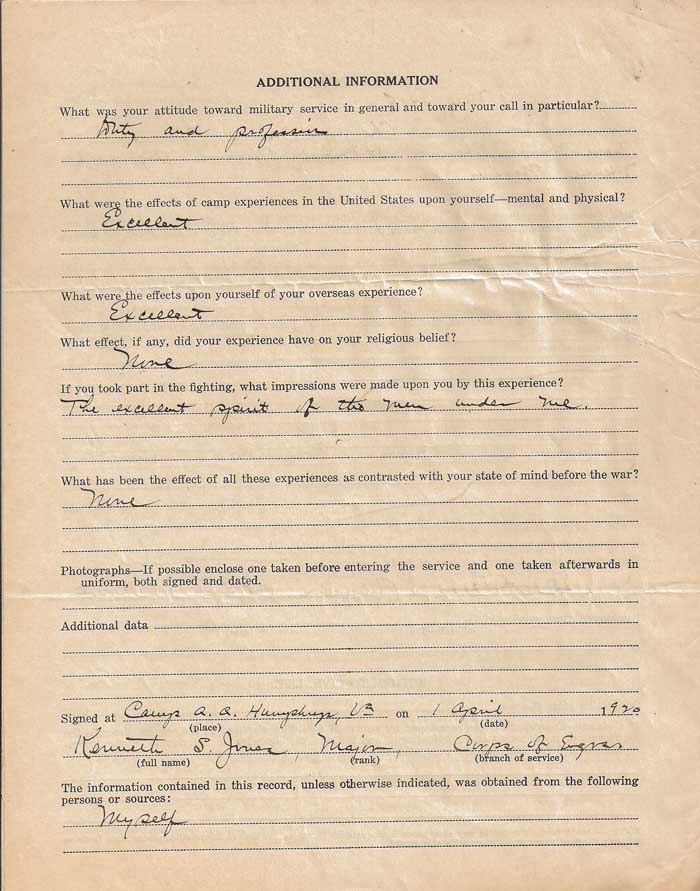 ADDITIONAL INFORMATION
What was your attitude toward military service in general and toward your call in particular?
Duty and profession
What were the effects of camp experiences in the United States upon yourself—mental and physical?
Excellent
What were the effects upon yourself of your overseas experience?
Excellent
What effect, if any, did your experience have on your religious belief?
None
If you took part in the fighting, what impressions were made upon you by this experience?
The excellent spirit of the men under me.
What has been the effect of all these experiences as contrasted with your state of mind before the war?
None
Photographs—If possible enclose one taken before entering the service and one taken afterwards in
uniform, both signed and dated.
Additional data
Signed at Camp A. A. Humphreys, Va on 1 April 1920
(place) (date)
Kenneth S. Jones, Major, Corps of Engrs
(full name) (rank) (branch of service)
The information contained in this record, unless otherwise indicated, was obtained from the following
persons or sources:
Myself